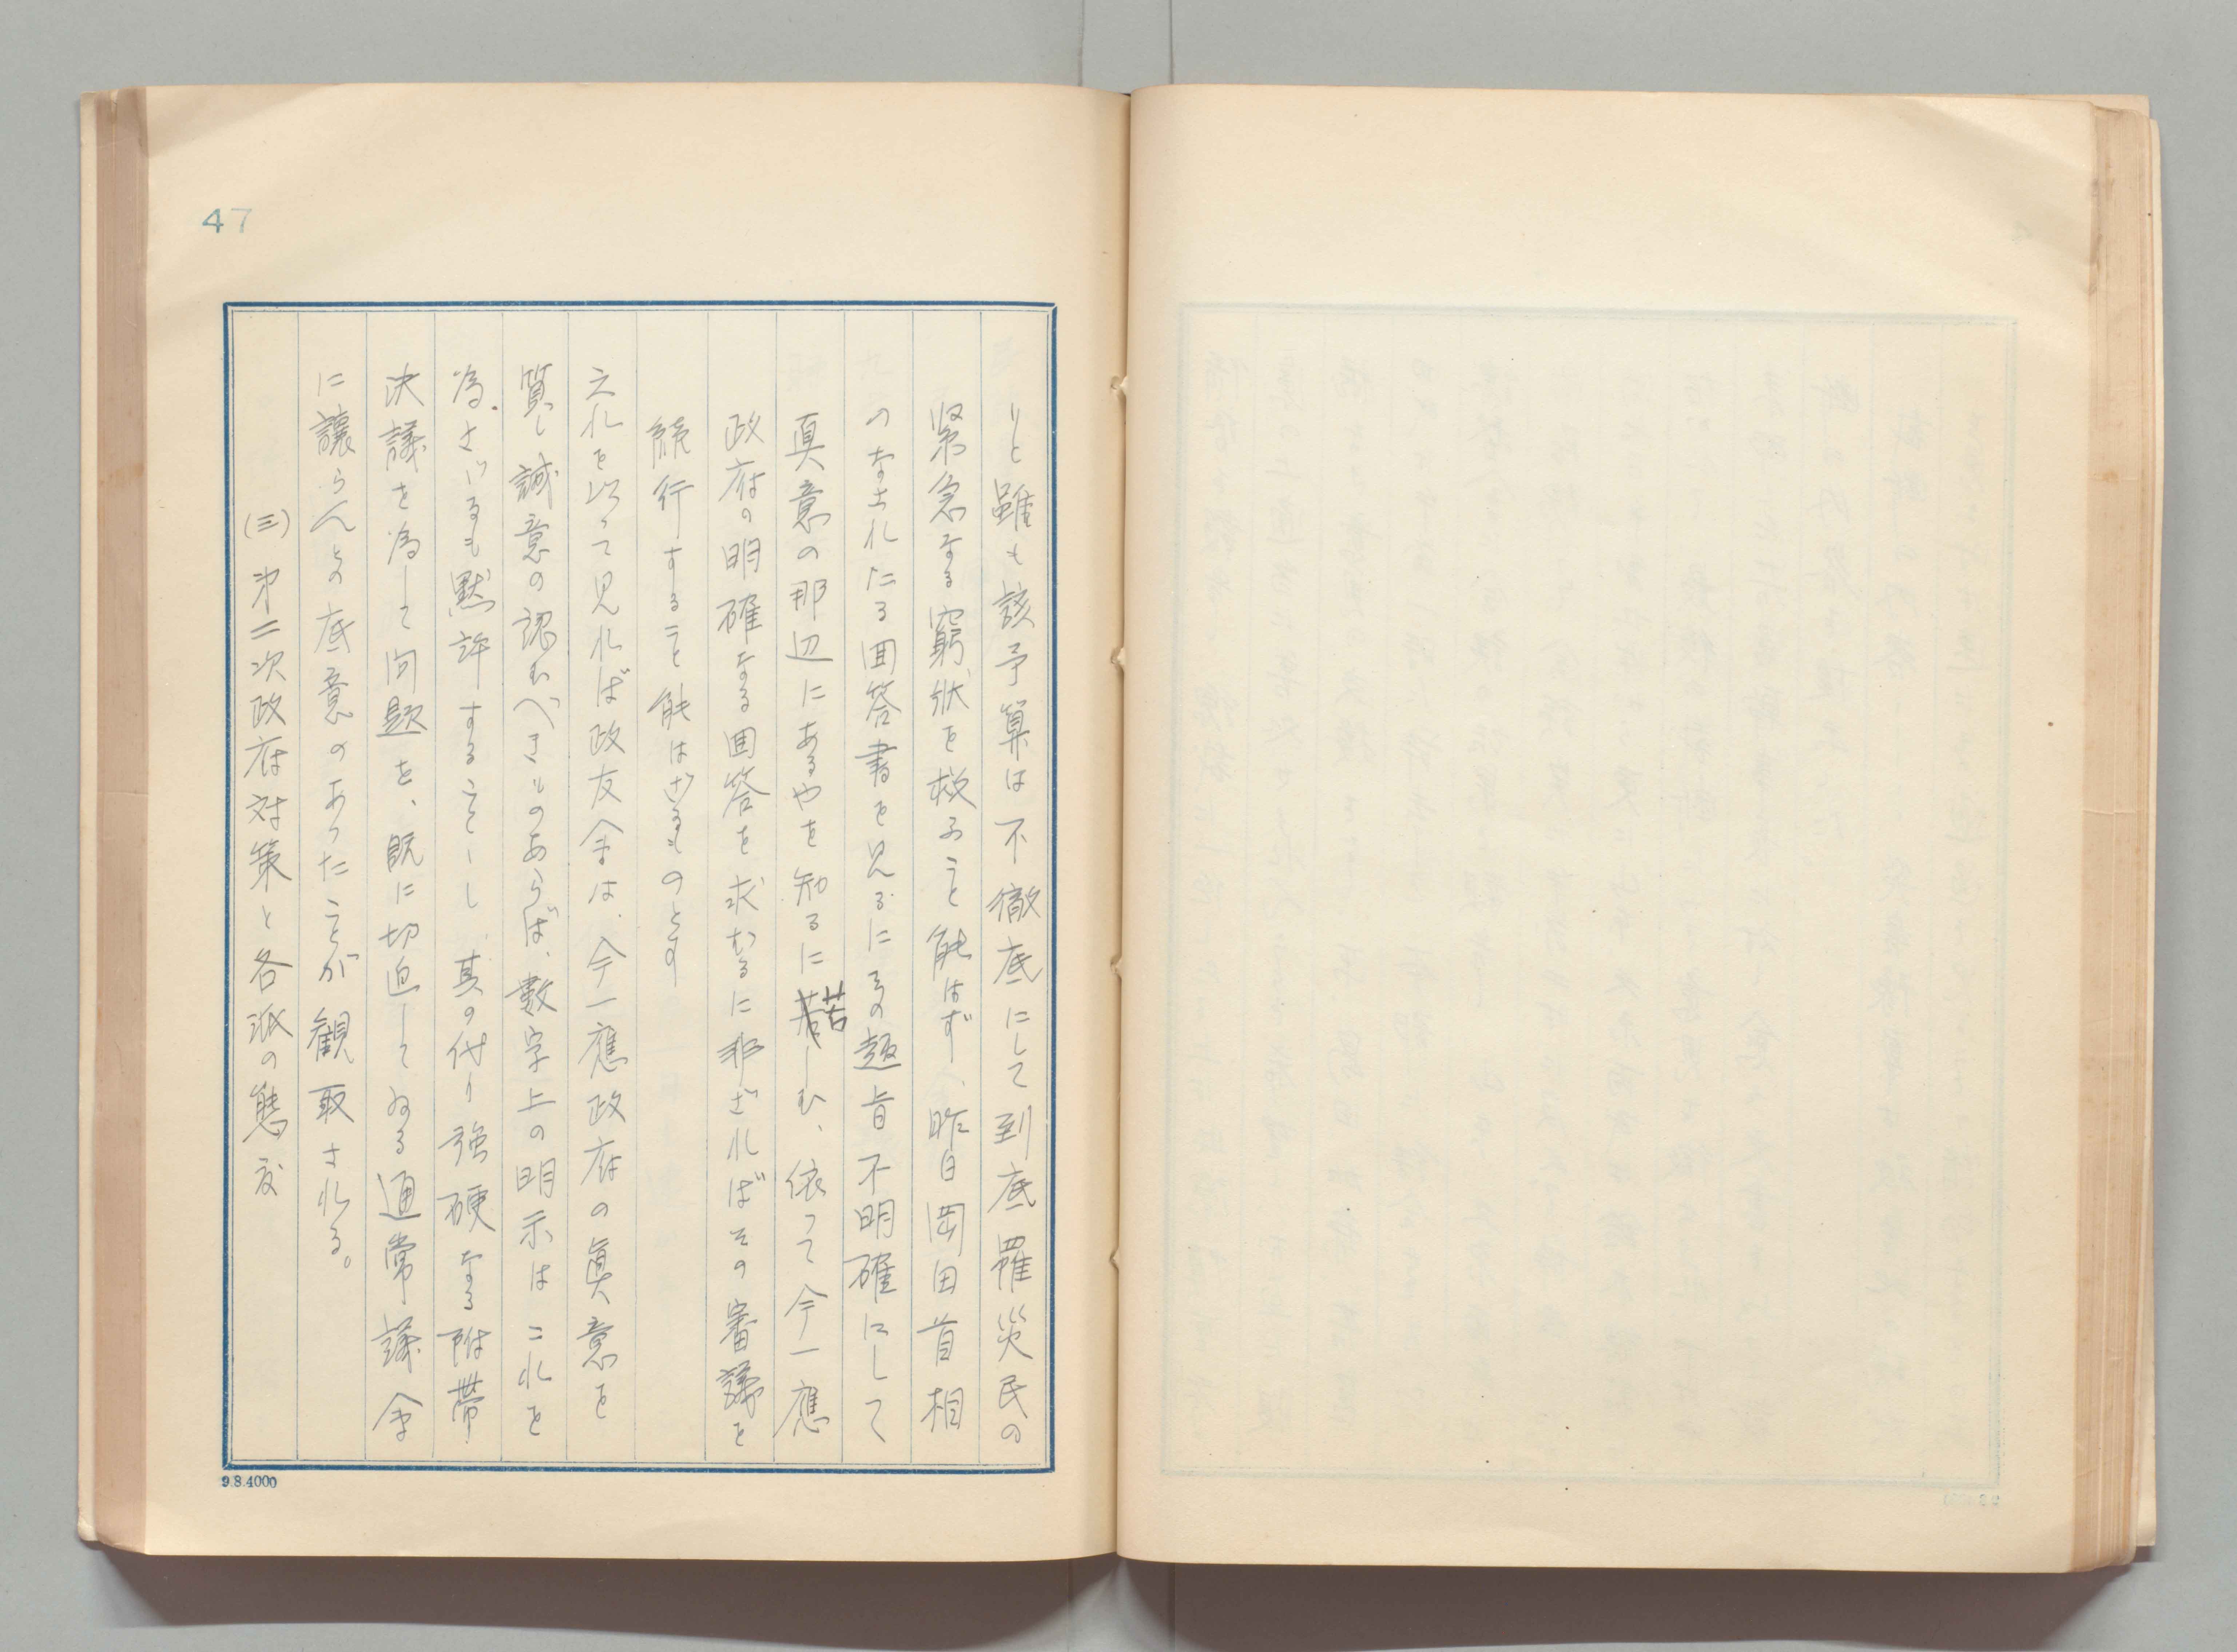 47
りと雖も該予算は不徹底にして到底罹災民の
緊急なる窮状を救ふこと能はず、昨日岡田首相
のなされたる回答書を見るにその趣旨不明確にして
真意の那辺にあるやを知るに苦しむ、依って今一應
政府の明確なる回答を求むるに非ざればその審議を
続行すること能はざるものとす
之れを以って見れば政友会は、今一應政府の眞意を
質し誠意の認むべきものあらば、数字上の明示はこれを
為さゞるも黙許することゝし、其の代り強硬なる附帯
決議を為して問題を、既に切迫してゐる通常議会
に譲らんとの底意のあったことが観取される。
(三)第二次政府対策と各派の態度
9.8.4000